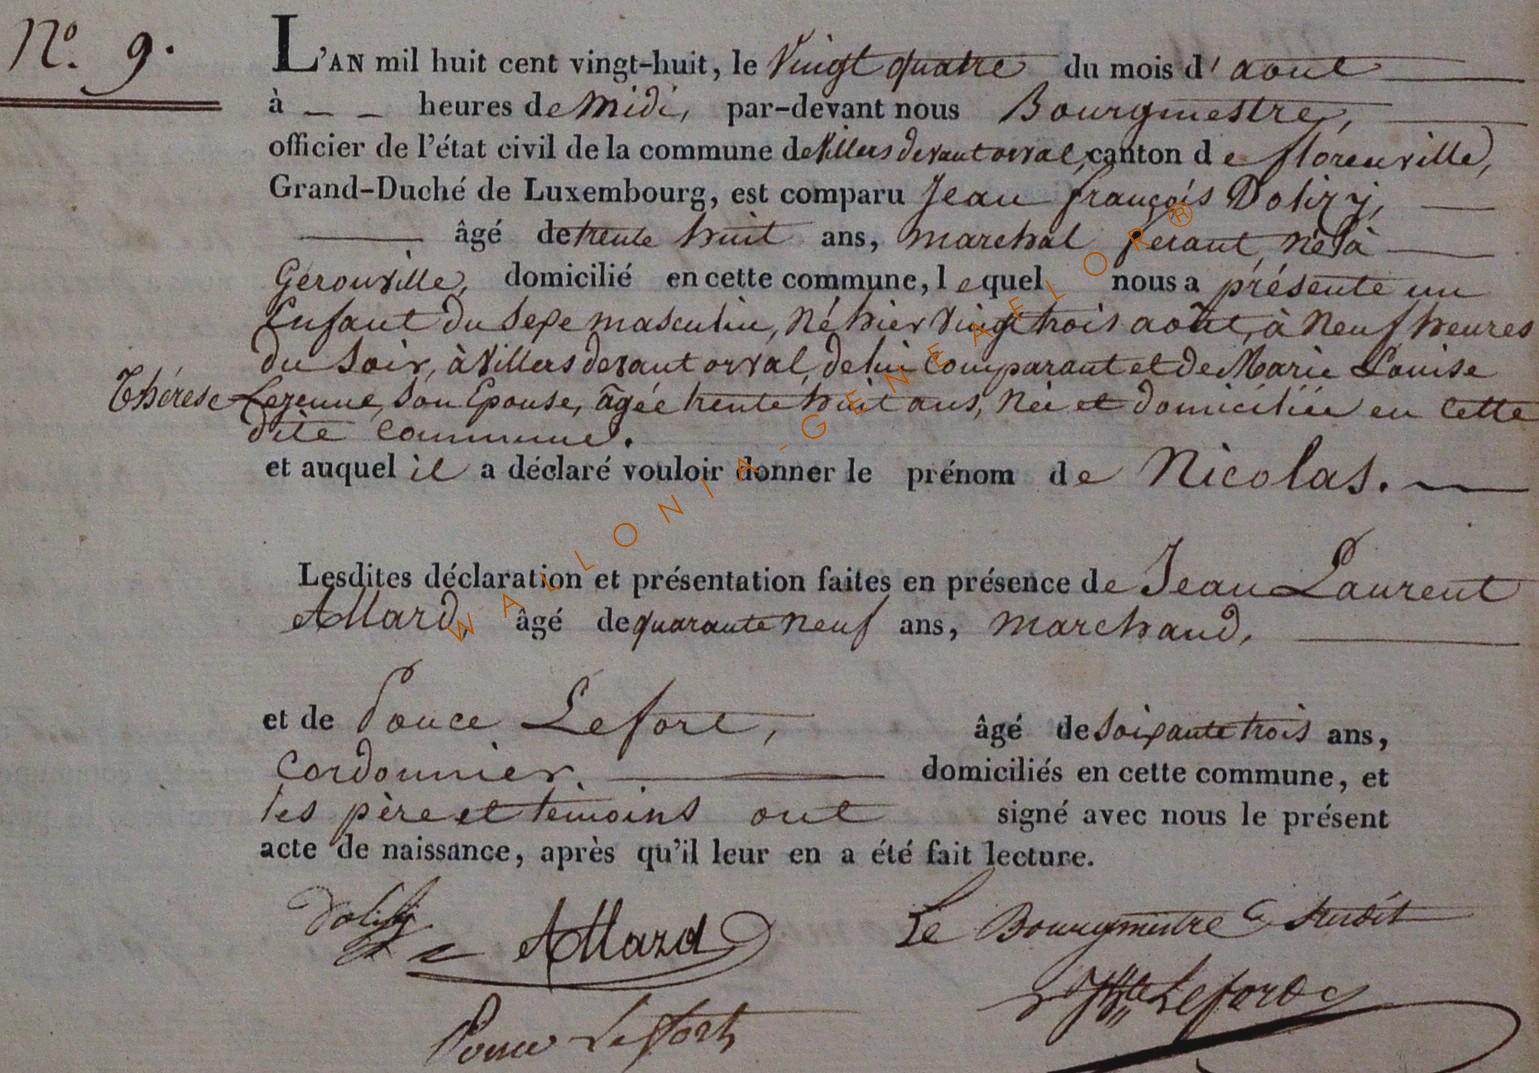 N.o 9.
L'AN mil huit cent vingt-huit, le Vingt quatre du mois d'aout
à — — heures de Midi, par-devant nous Bourgmestre,
officier de l'état civil de la commune de Villers devant orval, canton de florenville,
Grand-Duché de Luxembourg, est comparu Jean françois Dolizy,
âgé de trente huit ans, marchal ferant, né à
Gérouville, domicilié en cette commune, lequel nous a présenté un
Enfant du Sexe masculin, Né hier Vingt trois août, à Neuf heures
du Soir, à Villers devant orval, de lui Comparant et de Marie Louise
Thérese Lezenne, Son Epouse, âgée trente huit ans, Née et domiciliée en Cette
dite Commune.
et auquel il a déclaré vouloir donner le prénom de Nicolas.
Lesdites déclaration et présentation faites en présence de Jean Laurent
Allard, âgé de quarante Neuf ans, Marchand,
et de Ponce Lefort, âgé de Soixante trois ans,
Cordonnier. domiciliés en cette commune, et
les père et témoins ont signé avec nous le présent
acte de naissance, après qu'il leur en a été fait lecture.
Dolizy Allard Le Bourgmestre Susdit
Ponce Lefort Lefort
WALLONIA-GENEAELOR®